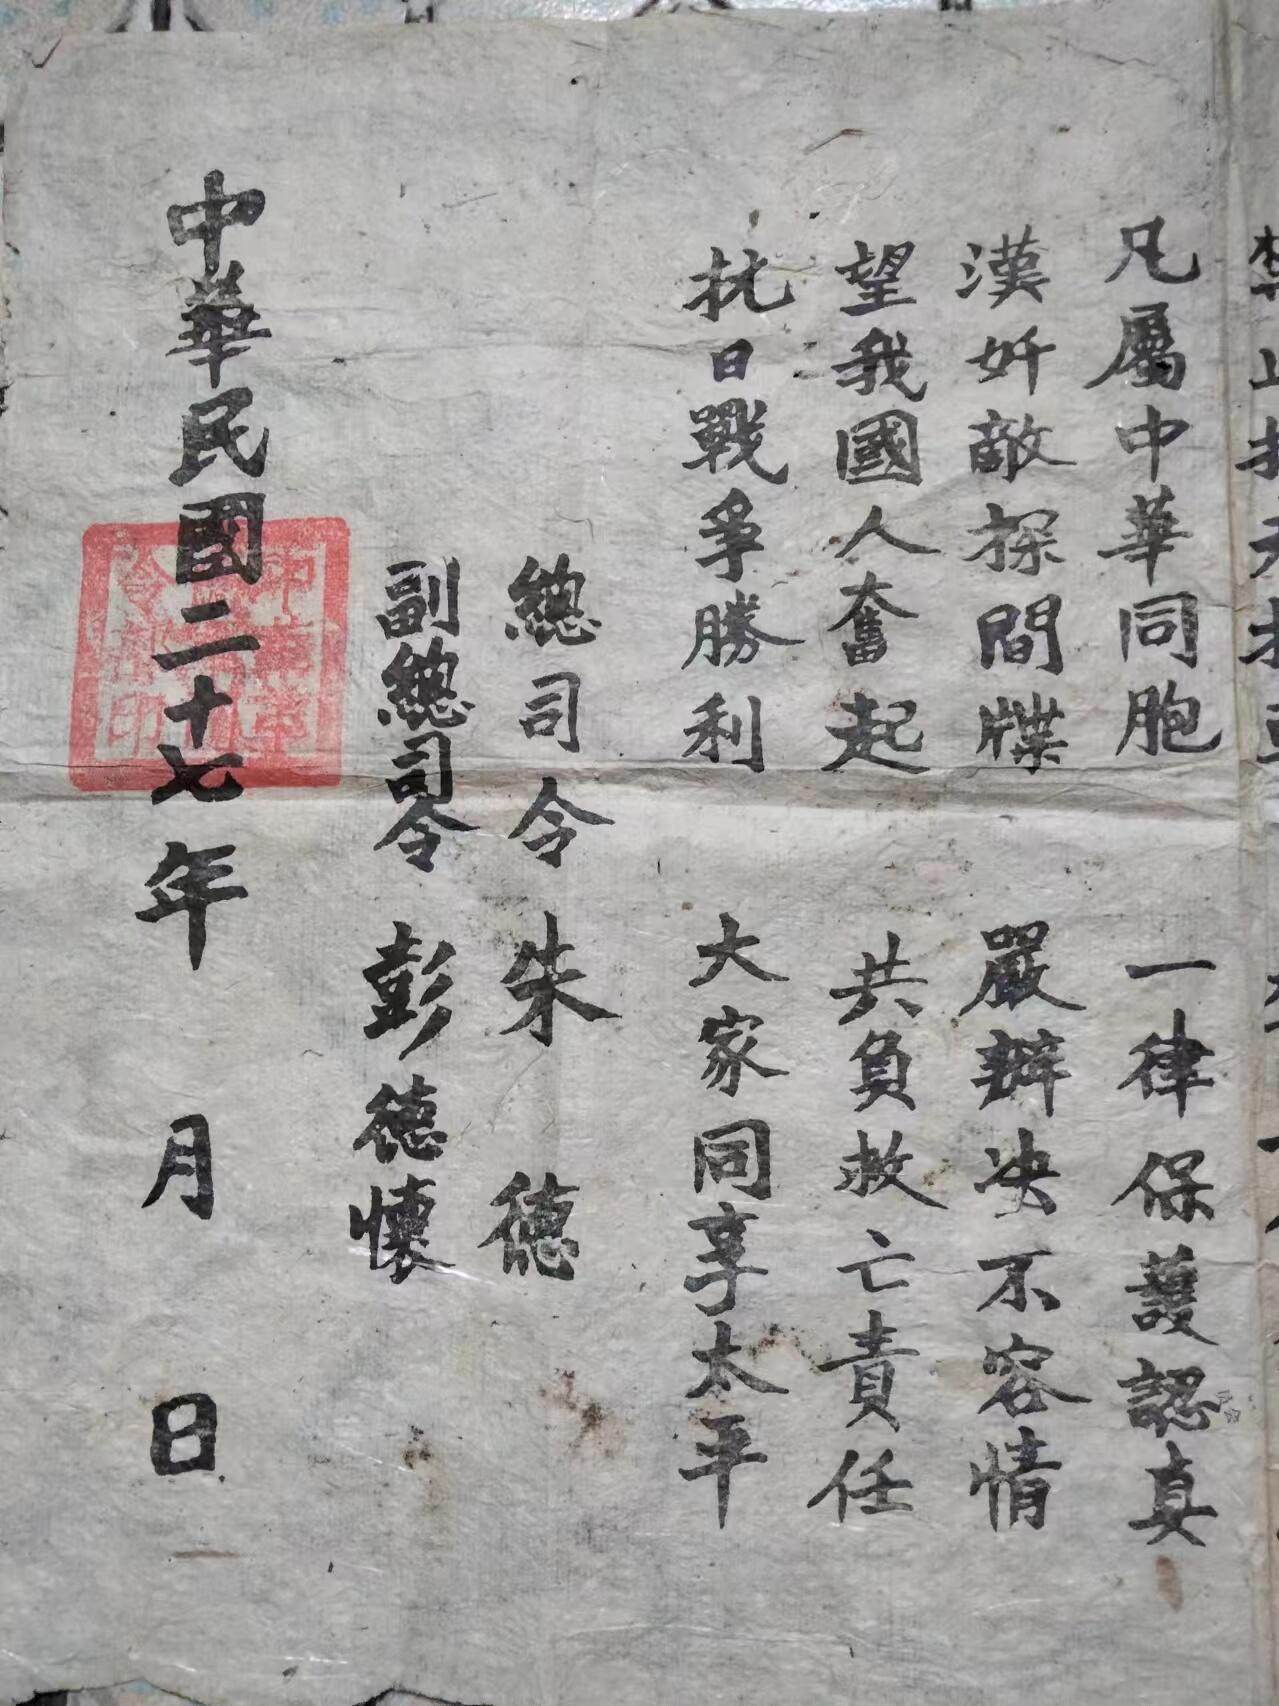 凡屬中華同胞　一律保護認真
漢奸敵探間牒　嚴辦决不容情
望我國人奮起　共負救亡責任
抗日戰爭勝利　大家同享太平
總司令　朱　德
副總司令　彭德懷
中華民國二十七年　月　日